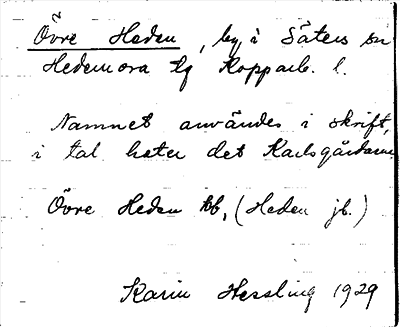 Övre Heden, by i Säters sn
Hedemora tg Kopparb. l.
Namnet användes i skrift,
i tal heter det Karlsgårdarna
Övre Heden kb, (Heden jb.)
Karin Hessling 1929